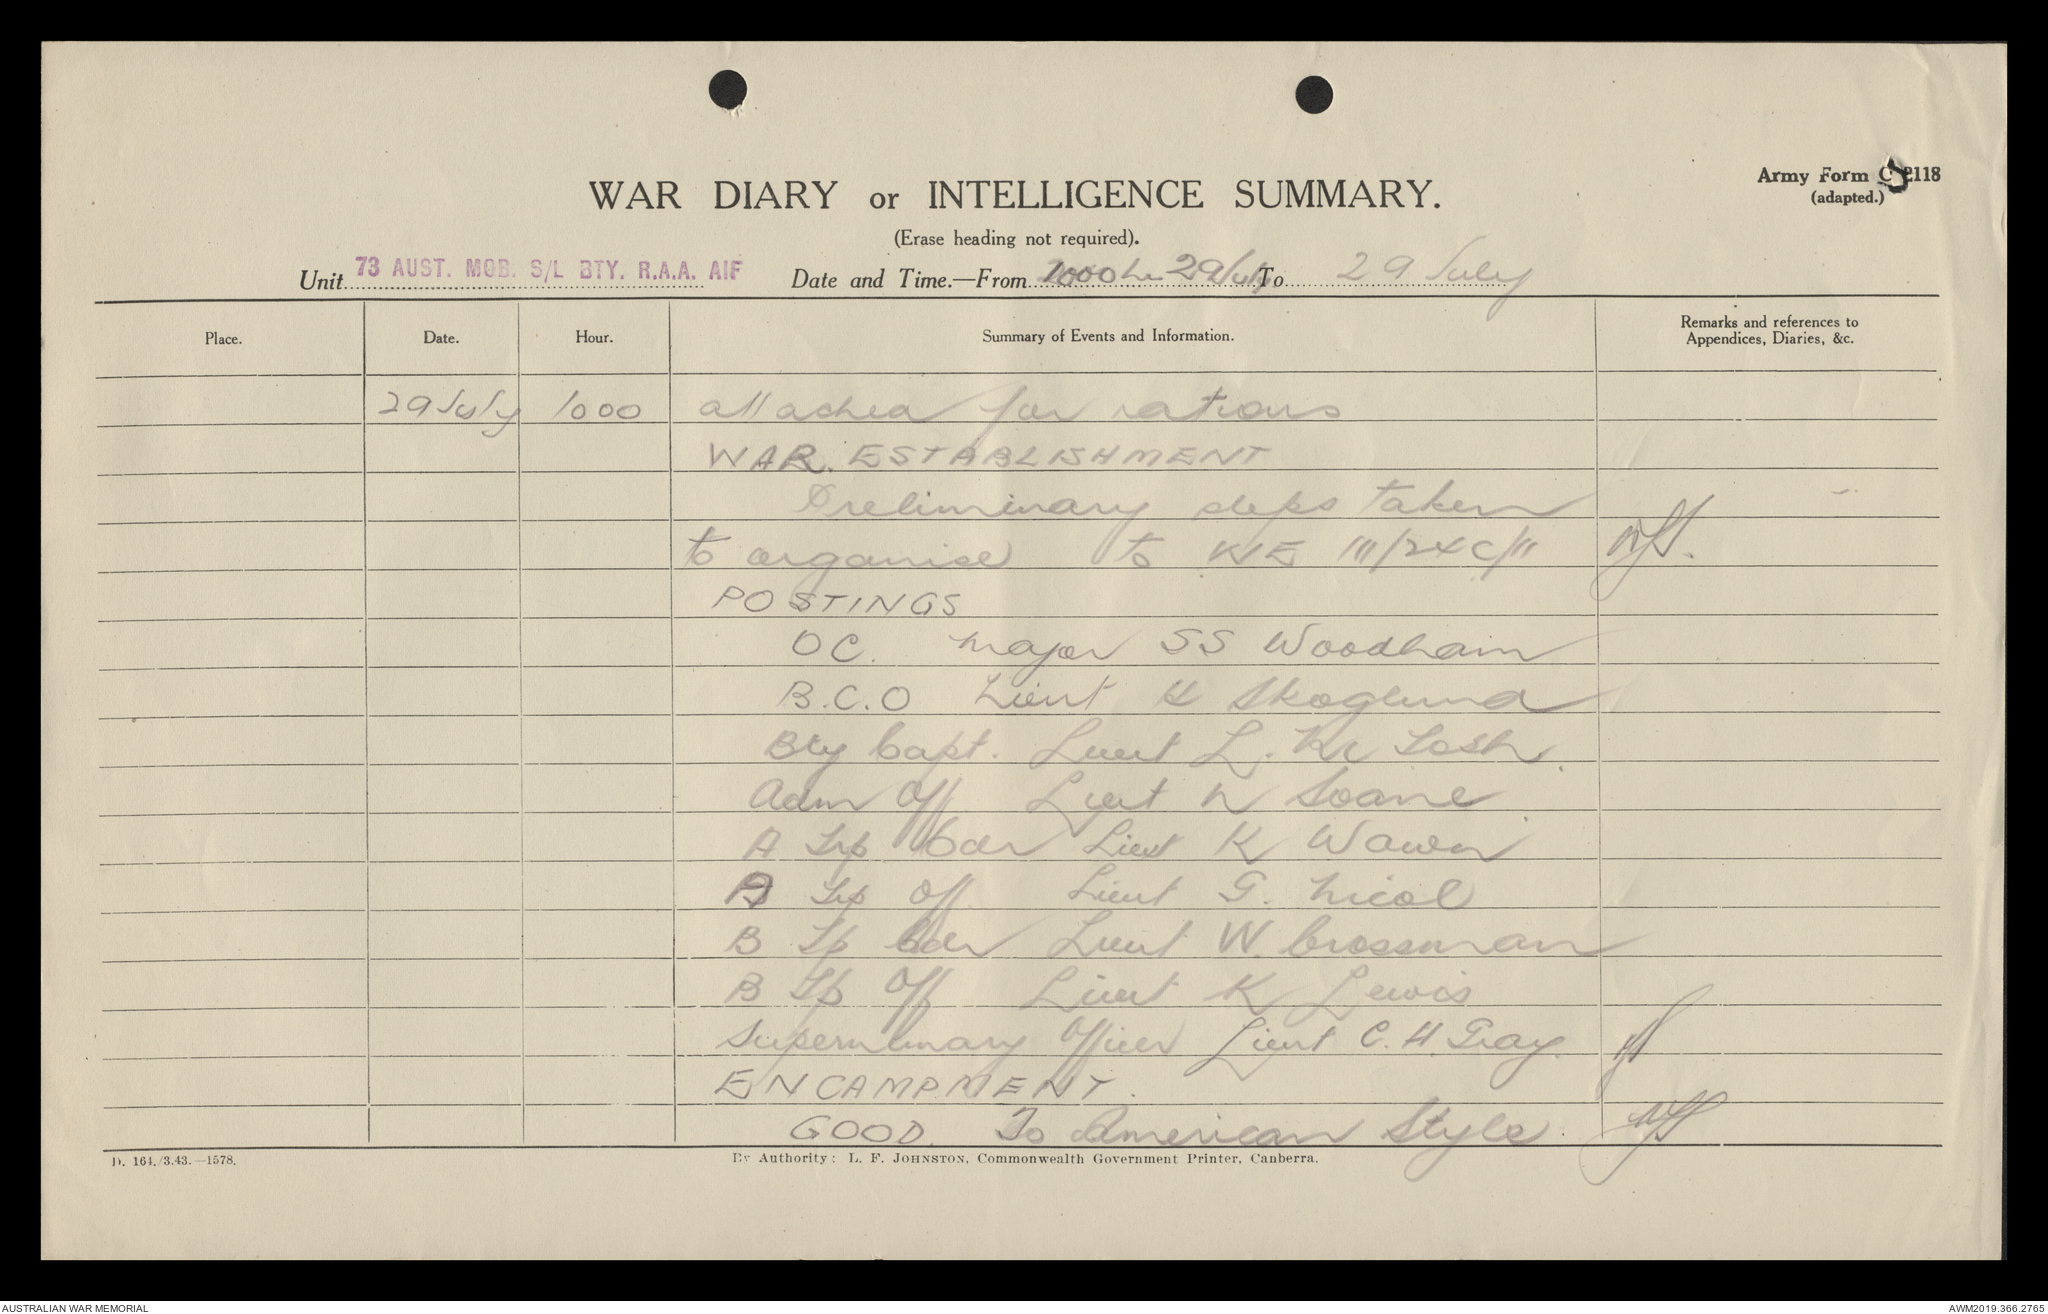 Army Form C 2118
(adapted.)
5
WAR DIARY or INTELLIGENCE SUMMARY.
(Erase heading not required).
Unit 73 AUST. MOB. S/L BTY. R.A.A. AIF Date and Time.—From 1000 hr 29 July To 29 July
Place. Date. Hour. Summary of Events and Information. Remarks and references to Appendices, Diaries, &c.
29 July 1000 attached for rations
WAR ESTABLISHMENT
Preliminary steps taken
to organise to WE 111/24C/11
POSTINGS
OC. Major SS Woodham
B.C.O Lieut H Skoglund
Bty Capt. Lieut L. Mc Tosh.
Adm Off Lieut N Soane
A Trp Cdr Lieut K Wawn
A Trp Off Lieut G. Nicol
B Tp Cdr Lieut W. Crossman
B Tp Off Lieut K Lewis
Supernumary Officer Lieut C. H. Gray.
ENCAMPMENT.
GOOD. To American Style.
D. 164./3.43.—1578.
By Authority: L. F. JOHNSTON, Commonwealth Government Printer, Canberra.
AUSTRALIAN WAR MEMORIAL
AWM2019.366.2765